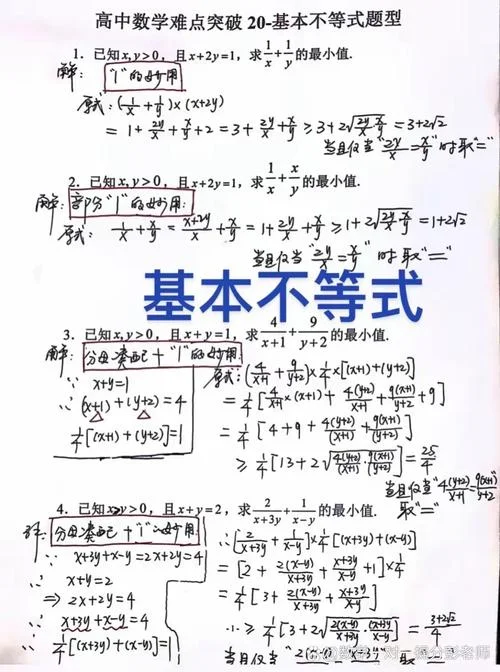 高中数学难点突破 20-基本不等式题型
1. 已知 x,y>0，且 x+2y=1，求 1/x+1/y 的最小值.
解： "1"的妙用
原式：(1/x+1/y)×(x+2y)
=1+2y/x+x/y+2=3+2y/x+x/y≥3+2√(2y/x·x/y)=3+2√2
当且仅当"2y/x=x/y"时取"="
2. 已知 x,y>0，且 x+2y=1，求 1/x+x/y 的最小值.
解： 部分"1"的妙用：
原式：1/x+x/y=(x+2y)/x+x/y=1+2y/x+x/y≥1+2√(2y/x·x/y)=1+2√2
当且仅当"2y/x=x/y"时取"="
基本不等式
3. 已知 x,y>0，且 x+y=1，求 4/(x+1)+9/(y+2) 的最小值.
解： 分母凑配+"1"的妙用
∵ x+y=1
∴ (x+1)+(y+2)=4
1/4[(x+1)+(y+2)]=1
原式：(4/(x+1)+9/(y+2))×1/4×[(x+1)+(y+2)]
=1/4[4/(x+1)×(x+1)+4(y+2)/(x+1)+9(x+1)/(y+2)+9]
=1/4[4+9+4(y+2)/(x+1)+9(x+1)/(y+2)]
≥1/4[13+2√(4(y+2)/(x+1)·9(x+1)/(y+2))]=25/4
当且仅当"4(y+2)/(x+1)=9(x+1)/(y+2)"
取"="
4. 已知 x>y>0，且 x+y=2，求 2/(x+3y)+1/(x-y) 的最小值.
分母凑配+"1"的妙用
∵ x+3y+x-y=2x+2y=4
∵ x+y=2
⇒ 2x+2y=4
∵ x+3y+x-y=4
∴ 1/4[(x+3y)+(x-y)]=1
∴[2/(x+3y)+1/(x-y)]×1/4[(x+3y)+(x-y)]
=[2+2(x-y)/(x+3y)+(x+3y)/(x-y)+1]×1/4
=1/4[3+2(x-y)/(x+3y)+(x+3y)/(x-y)]
∴≥1/4[3+2√(2(x-y)/(x+3y)·(x+3y)/(x-y))]=(3+2√2)/4